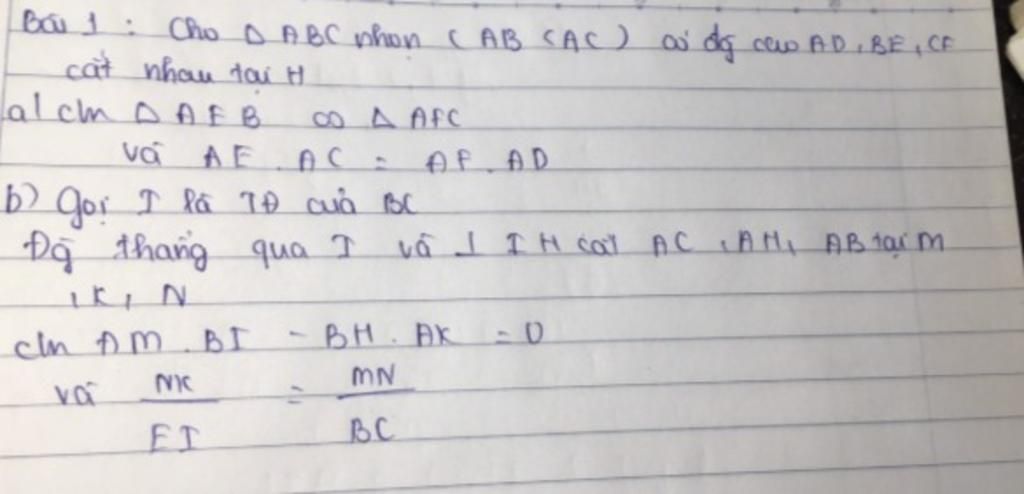 Bài 1 : Cho Δ ABC nhọn ( AB < AC ) có đg cao AD, BE, CF
cắt nhau tại H
a) cm Δ AEB ∞ Δ AFC
và AE . AC = AF . AD
b) Gọi I là TĐ của BC
Đg thẳng qua I và ⊥ IH cắt AC , AH, AB tại M
, K, N
cm AM . BI - BH . AK = 0
và NK/EI = MN/BC